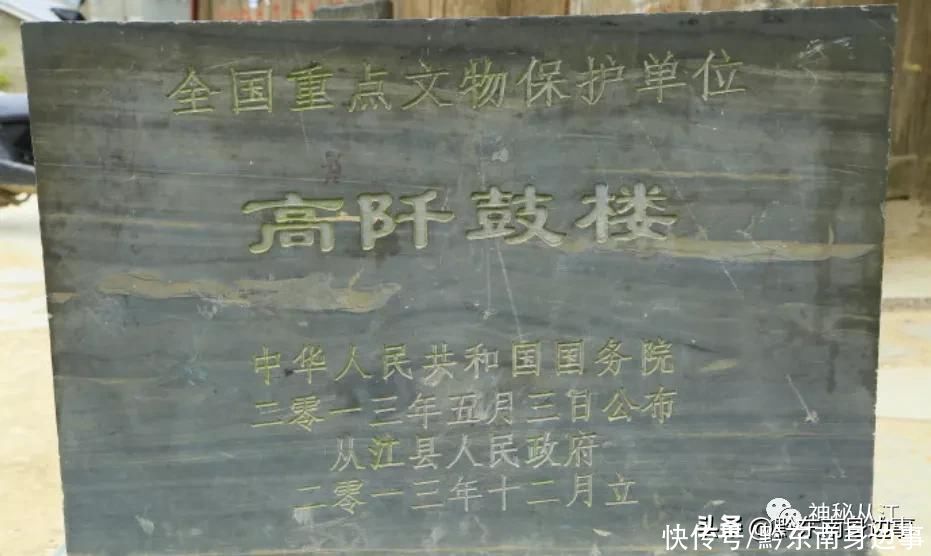 全国重点文物保护单位
高阡鼓楼
中华人民共和国国务院
二零一三年五月三日公布
从江县人民政府
二零一三年十二月立
神秘从江
头条@黔东南身边事
快传号/黔东南身边事